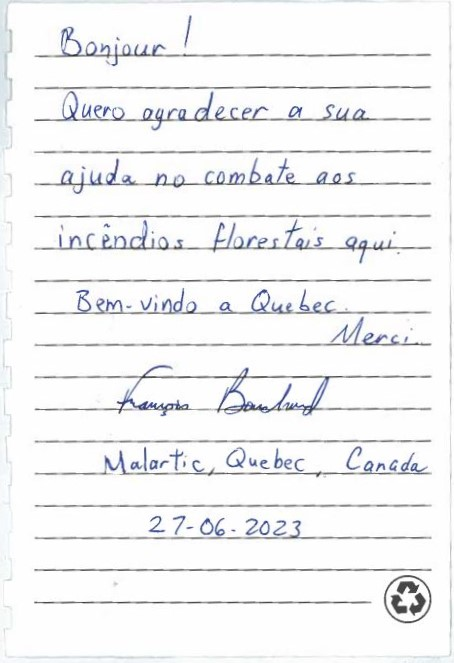 Bonjour !
Quero agradecer a sua
ajuda no combate aos
incêndios florestais aqui.
Bem-vindo a Quebec.
Merci.
François Bouchard
Malartic, Quebec, Canada
27-06-2023